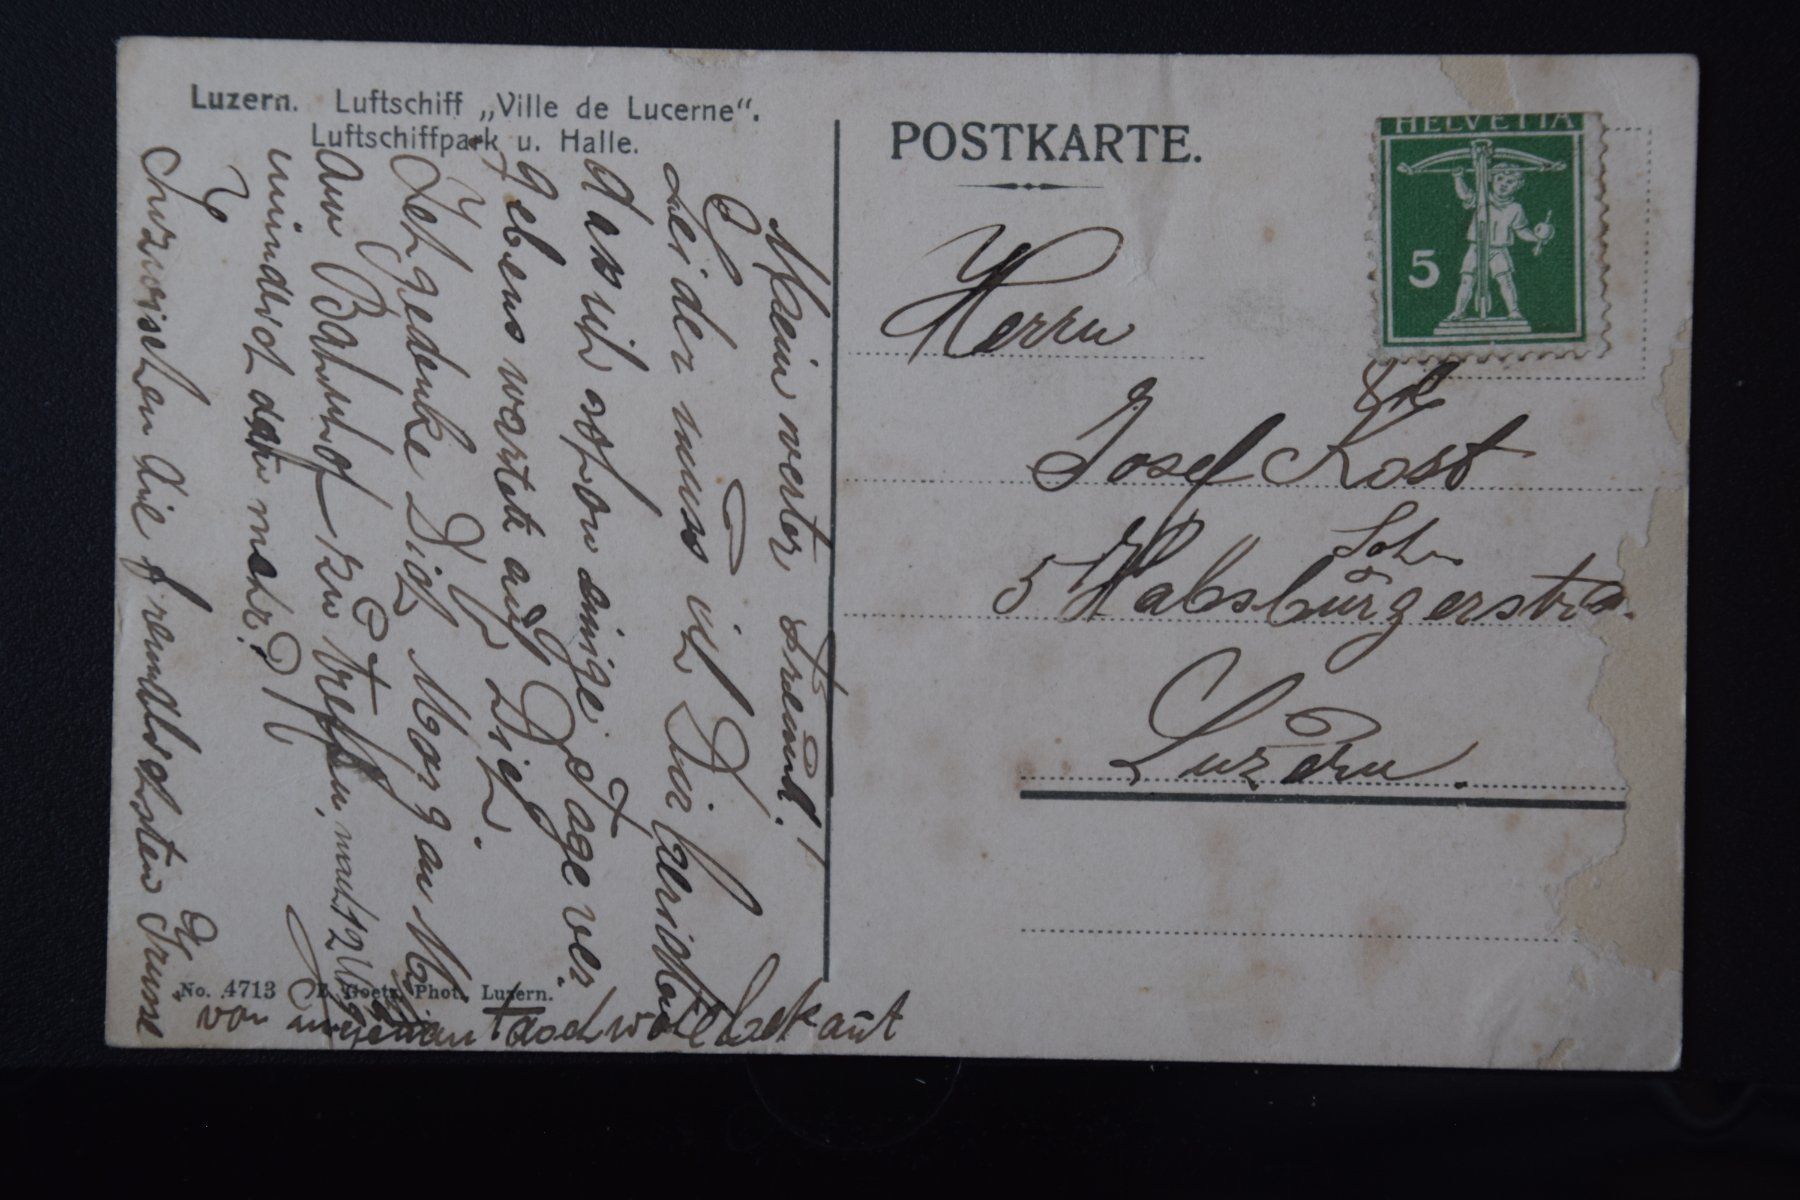 Luzern. Luftschiff „Ville de Lucerne“.
Luftschiffpark u. Halle.
POSTKARTE.
HELVETIA
5
Herrn
Josef Kost
Sohn
5 Habsburgerstr.
Luzern.
Mein werter Freund!
Leider muss ich Dir berichten
dass ich schon einige Tage ver
gebens wartete auf Dich.
Ich gedenke Dich Morgen
am Bahnhof zu treffen, nach 12 Uhr
mündlich dann mehr.
Inzwischen die freundlichsten Grüsse
von doch wohl bekannt
No. 4713 E. Goetz, Phot., Luzern.